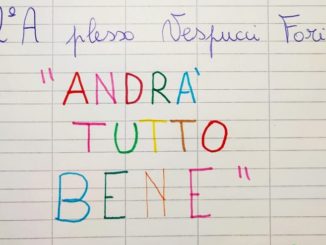 2ª A plesso Vespucci Fori
"ANDRA'
TUTTO
BENE"